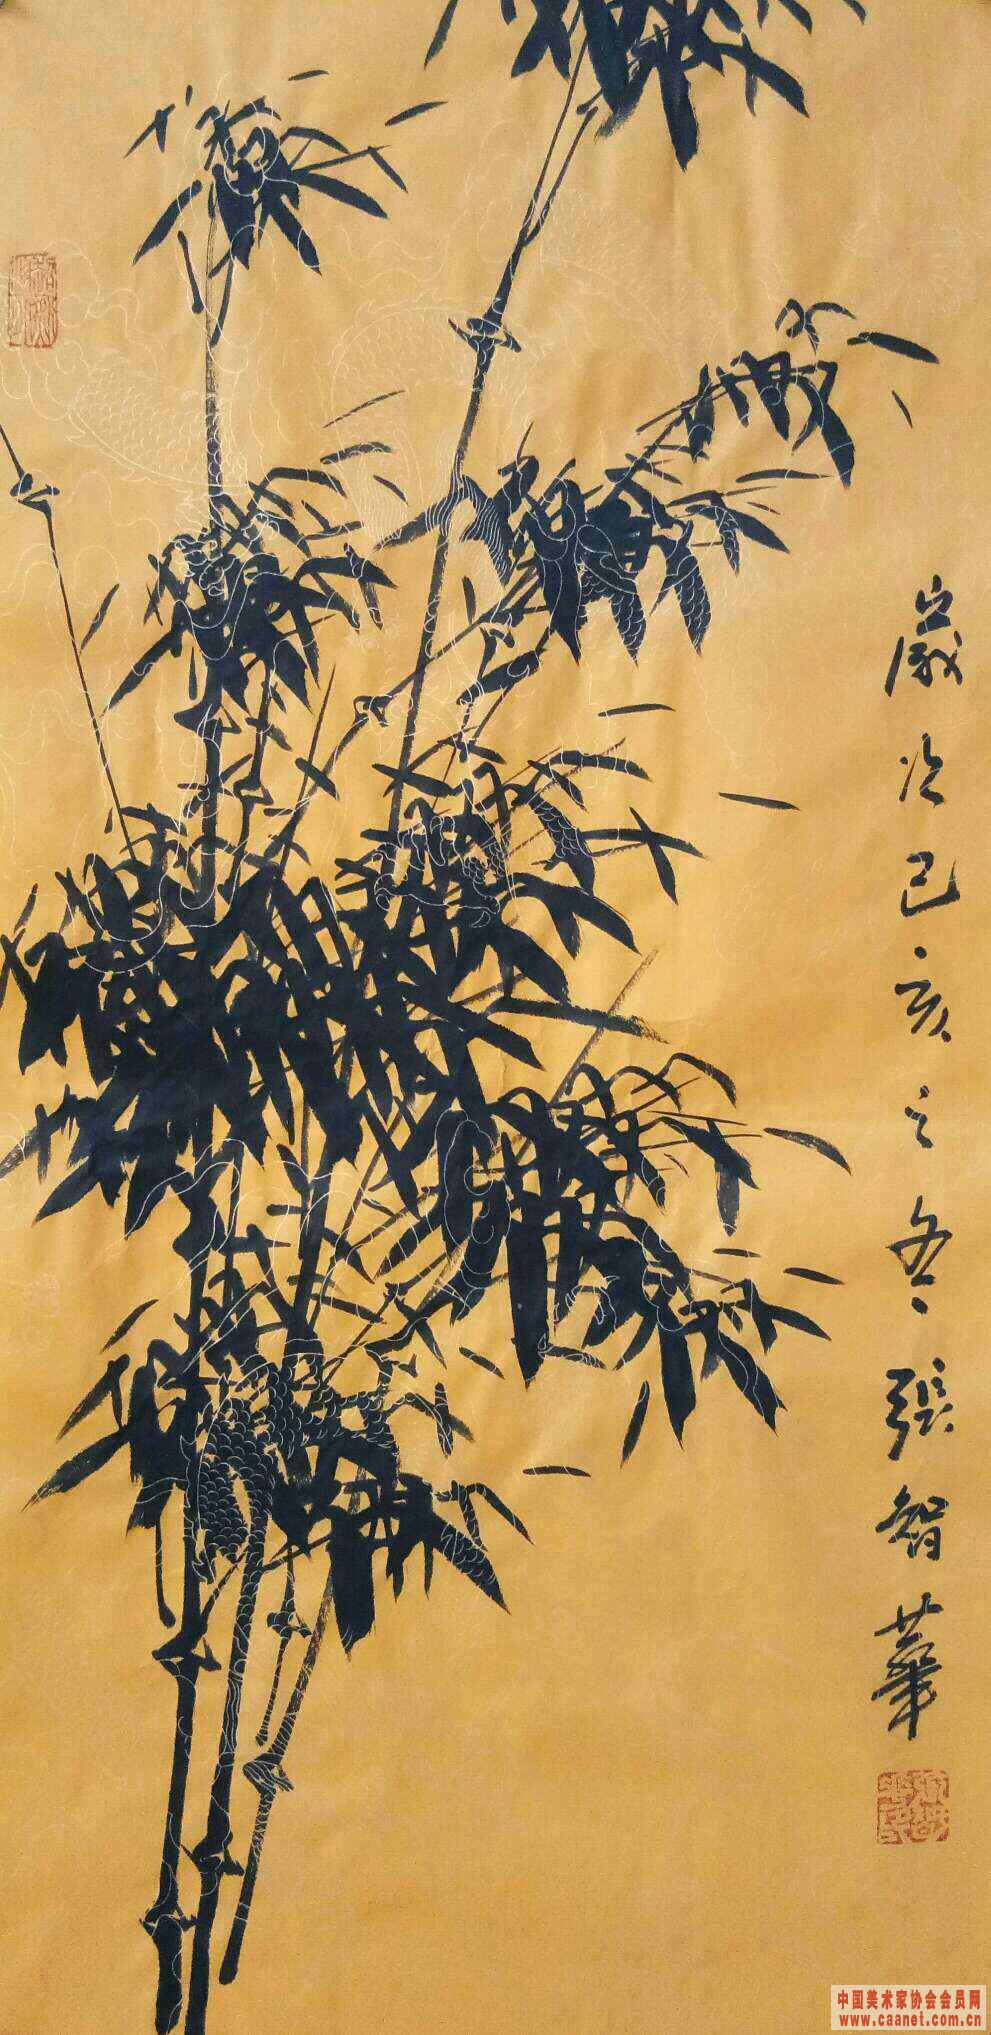 歲次己亥之冬張智華
中国美术家协会会员网
www.caanet.com.cn